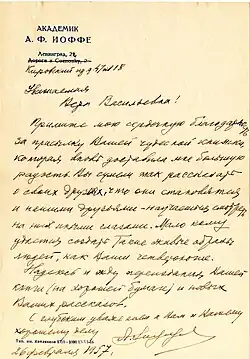 АКАДЕМИК
А. Ф. ИОФФЕ
Ленинград, 21,
Дорога в Сосновку, 2
Кировский пр. д
Уважаемая
Вера Васильевна!
Примите мою сердечную благодарность
за присылку Вашей чудесной книжки,
которая доставила мне большую
радость. Вы сумели так рассказать
о своих друзьях, что они становятся
и нашими друзьями
на них иными глазами. Мало кому
удается создать такие живые образы
людей, как Ваши
Надеюсь и жду переиздания Вашей
книги (на хорошей бумаге) и новых
Ваших рассказов.
С глубоким уважением к Вам и Вашему
хорошему делу
А. Иоффе
26 февраля 1957 г.